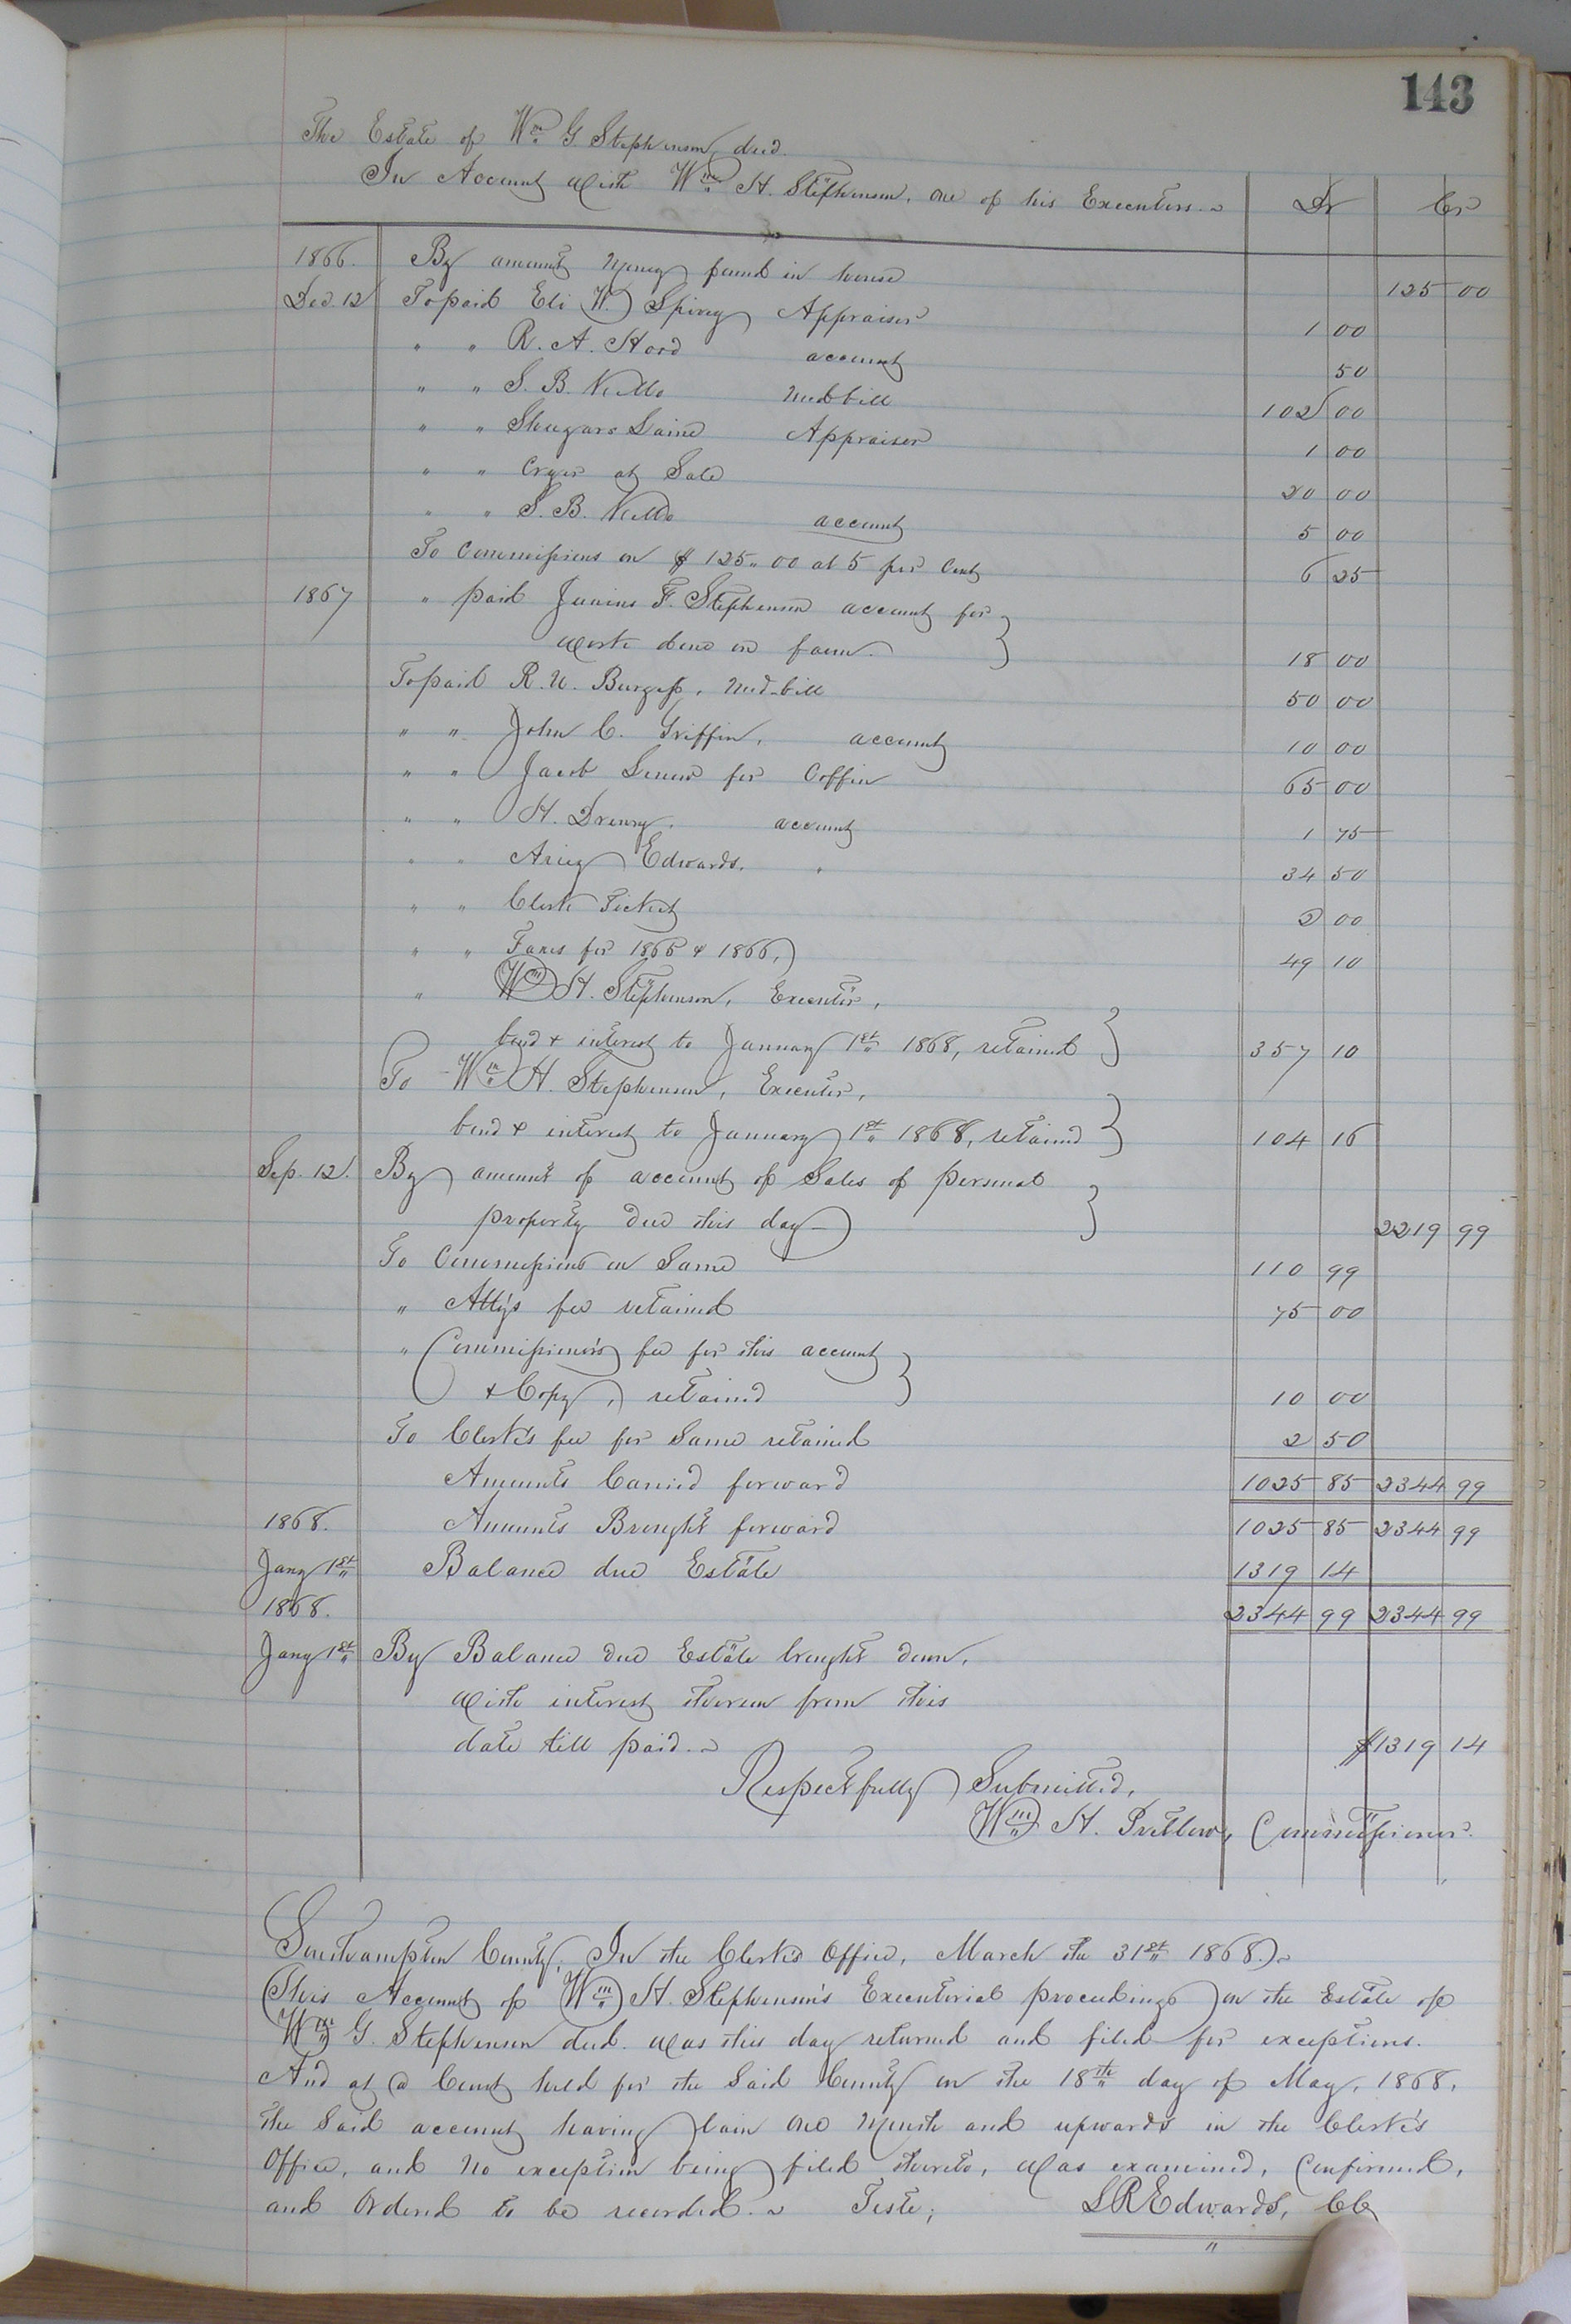 143
The Estate of Wm G. Stephenson, decd.
In Account with Wm H. Stephenson, one of his Executors. Dr Cr
1866. By amount money found in house 125 00
Dec. 12 To paid Eli W. Spivey Appraiser 1 00
" " R. A. Hood account 50
" " S. B. Medbill 102 00
" " Shugars Laine Appraiser 1 00
" " Cryer at Sale 20 00
" " S. B. account 5 00
To Commissions on $125.00 at 5 per Cent 6 25
1867 " paid Junius F. Stephenson account for
work done on farm. 18 00
To paid R. U. Burgess, Med-bill 50 00
" " John C. Griffin, account 10 00
" " Jacob for Coffin 65 00
" " H. Drewry, account 1 75
" " Edwards. " 34 50
" " Clerk Ticket 2 00
" " Taxes for 1865 & 1866, 49 10
" Wm H. Stephenson, Executor,
bond & interest to January 1st 1868, retained 357 10
To Wm H. Stephenson, Executor,
bond & interest to January 1st 1868, retained 104 16
Sep. 12. By amount of account of Sales of personal
property due this day 2219 99
To Commissions on Same 110 99
" Atty's fee retained 75 00
" Commissioner's fee for this account
& Copy, retained 10 00
To Clerk's fee for Same retained 2 50
Amounts Carried forward 1025 85 2344 99
1868. Amounts Brought forward 1025 85 2344 99
Jany 1st Balance due Estate 1319 14
1868. 2344 99 2344 99
Jany 1st By Balance due Estate brought down,
with interest thereon from this
date till paid. $1319 14
Respectfully Submitted,
Wm H. Pretlow, Commissioner.
Southampton County, In the Clerk's Office, March the 31st 1868.
This Account of Wm H. Stephenson's Executorial proceedings on the Estate of
Wm G. Stephenson decd. was this day returned and filed for exceptions.
And at a Court held for the Said County on the 18th day of May, 1868,
the Said account having lain one month and upwards in the Clerk's
Office, and no exception being filed thereto, was examined, Confirmed,
and Ordered to be recorded. Teste;
L R Edwards, CC